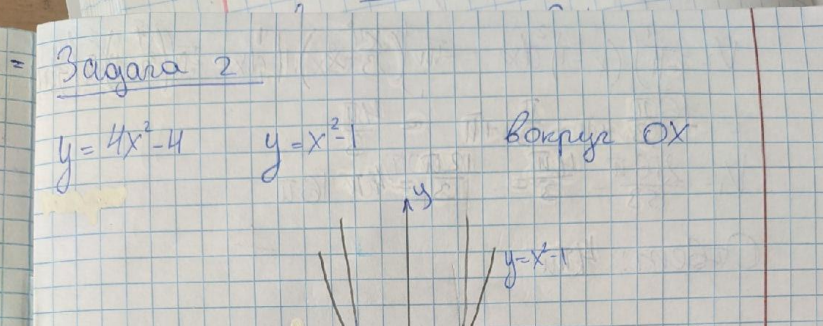 =
Задача 2
y = 4x²-4 y = x²-1 вокруг OX
y
y=x²-1